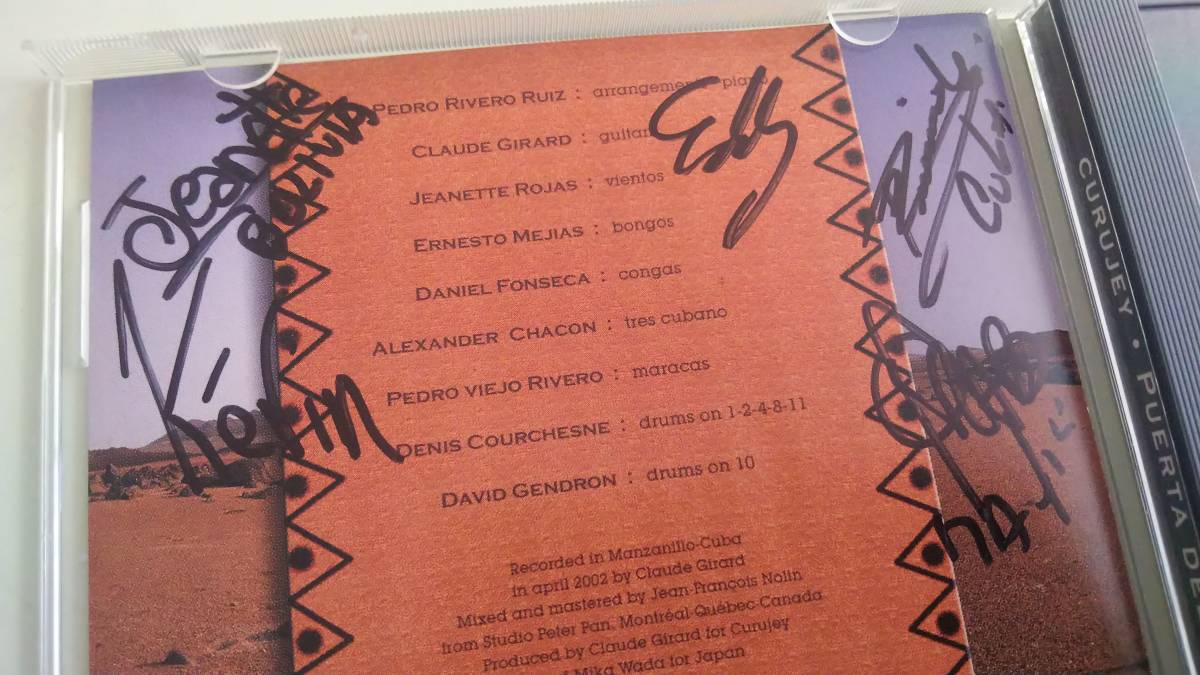 PEDRO RIVERO RUIZ : arrangements piano
CLAUDE GIRARD : guitar
JEANETTE ROJAS : vientos
ERNESTO MEJIAS : bongos
DANIEL FONSECA : congas
ALEXANDER CHACON : tres cubano
PEDRO VIEJO RIVERO : maracas
DENIS COURCHESNE : drums on 1-2-4-8-11
DAVID GENDRON : drums on 10
Recorded in Manzanillo-Cuba
in april 2002 by Claude Girard
Mixed and mastered by Jean-François Nolin
from Studio Peter Pan, Montréal-Québec-Canada
Produced by Claude Girard for Curujey
Mika Wada for Japan
Jeanette
Kevin
Eddy
CURUJEY • PUERTA DE